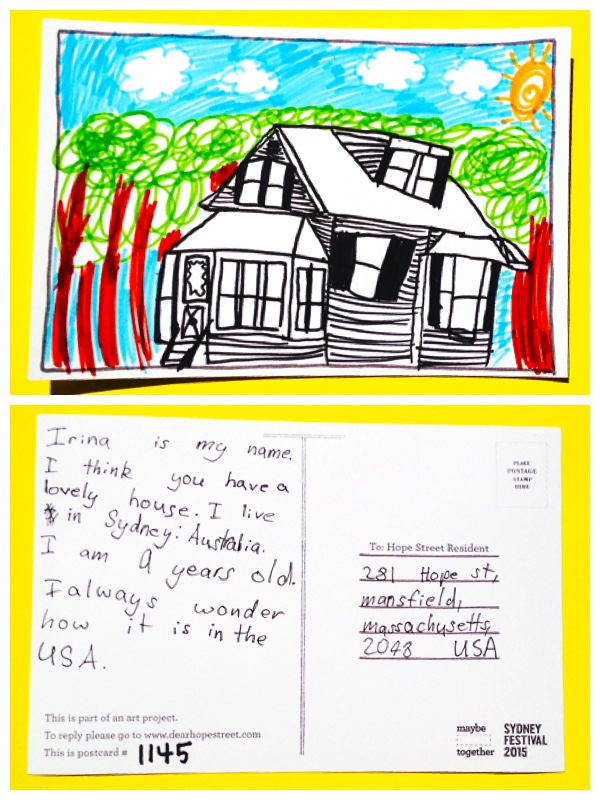 Irina is my name.
I think you have a
lovely house. I live
in Sydney: Australia.
I am 9 years old.
I always wonder
how it is in the
USA.
This is part of an art project.
To reply please go to www.dearhopestreet.com
This is postcard # 1145
PLACE
POSTAGE
STAMP
HERE
To: Hope Street Resident
281 Hope st,
mansfield,
massachusetts,
2048 USA
maybe
together
SYDNEY
FESTIVAL
2015